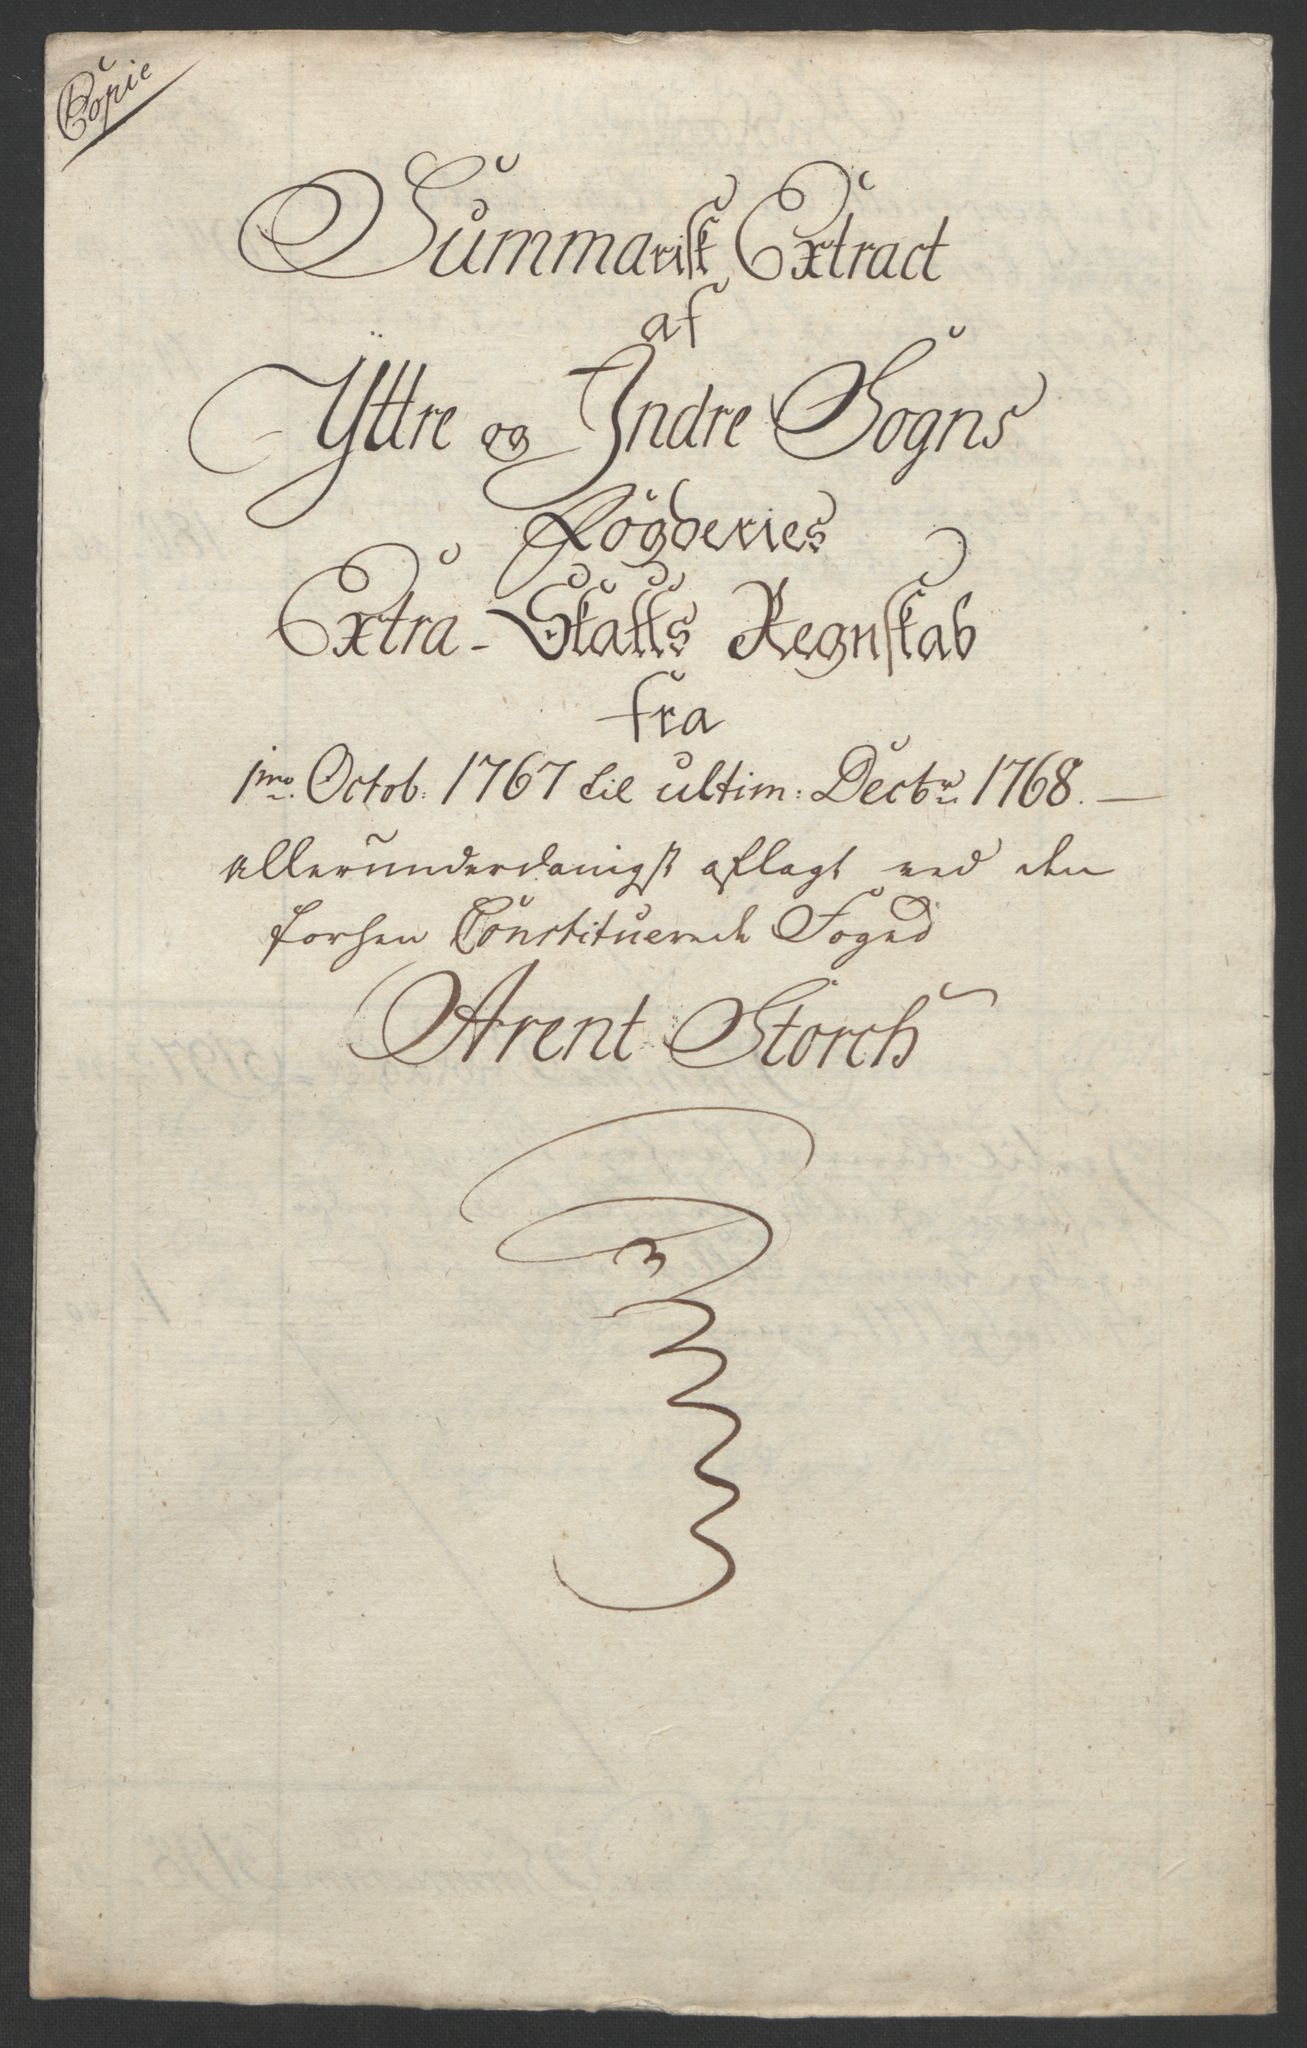 Copie
Summarisk Extract
af
Yttre og Indre Sogns
Fogderies
Extra-Skatts Regnskab
fra
1mo Octob: 1767 til ultim: Decbr 1768. —
allerunderdanigst aflagt ved den
forhen Constituerede Foged
Arent Storch